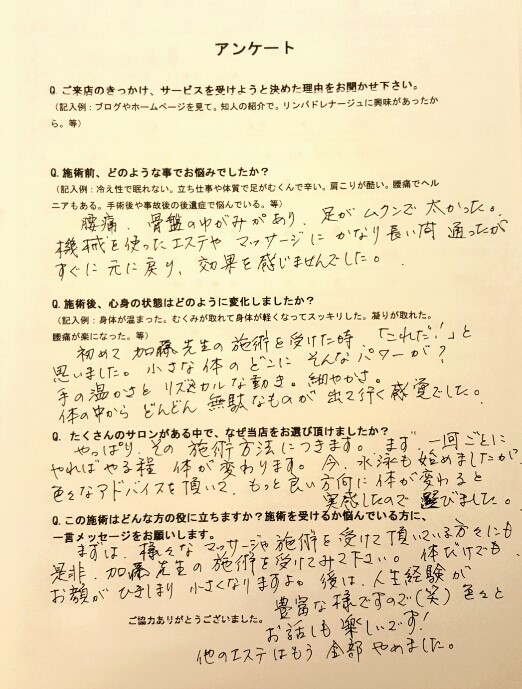 アンケート
Q. ご来店のきっかけ、サービスを受けようと決めた理由をお聞かせ下さい。
（記入例：ブログやホームページを見て。知人の紹介で。リンパドレナージュに興味があったか
ら。等）
Q. 施術前、どのような事でお悩みでしたか？
（記入例：冷え性で眠れない。立ち仕事や体質で足がむくんで辛い。肩こりが酷い。腰痛でヘル
ニアもある。手術後や事故後の後遺症で悩んでいる。等）
腰痛、骨盤のゆがみがあり、足がムクンで太かった。
機械を使ったエステや マッサージに かなり長い間 通ったが
すぐに元に戻り、効果を感じませんでした。
Q. 施術後、心身の状態はどのように変化しましたか？
（記入例：身体が温まった。むくみが取れて身体が軽くなってスッキリした。凝りが取れた。
腰痛が楽になった。等）
初めて 加藤先生の施術を受けた時、「これだ!」と
思いました。小さな体のどこに そんなパワーが？
手の温かさと リズミカルな動き。細やかさ。
体の中から どんどん 無駄なものが 出て行く感覚でした。
Q. たくさんのサロンがある中で、なぜ当店をお選び頂けましたか？
やっぱり、その 施術方法につきます。まず、一回ごとに
やればやる程 体が変わります。今、水泳も始めましたが、
色々なアドバイスを頂いて、もっと良い方向に 体が変わると
実感したので 選びました。
Q. この施術はどんな方の役に立ちますか？施術を受けるか悩んでいる方に、
一言メッセージをお願いします。
まずは、様々な マッサージや 施術を受けて頂いている方々にも
是非、加藤先生の 施術を受けてみて下さい。体だけでも
お顔が ひきしまり 小さくなりますよ。後は、人生経験が
豊富な様ですので(笑) 色々と
ご協力ありがとうございました。
お話しも 楽しいです!
他のエステはもう 全部 やめました。